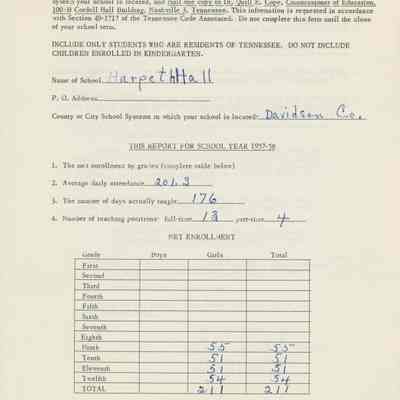 system your school is located, and mail one copy to Dr. Quill E. Cope, Commissioner of Education,
100-B Cordell Hull Building, Nashville 3, Tennessee. This information is requested in accordance
with Section 49-1717 of the Tennessee Code Annotated. Do not complete this form until the close
of your school term.
INCLUDE ONLY STUDENTS WHO ARE RESIDENTS OF TENNESSEE. DO NOT INCLUDE
CHILDREN ENROLLED IN KINDERGARTEN.
Name of School Harpeth Hall
P. O. Address
County or City School Systems in which your school is located: Davidson Co.
THIS REPORT FOR SCHOOL YEAR 1957-58
1. The net enrollment by grades (complete table below)
2. Average daily attendance 201.3
3. The number of days actually taught 176
4. Number of teaching positions: full-time 13 part-time 4
NET ENROLLMENT
Grade Boys Girls Total
First
Second
Third
Fourth
Fifth
Sixth
Seventh
Eighth
Ninth 55 55
Tenth 51 51
Eleventh 51 51
Twelfth 54 54
TOTAL 211 211